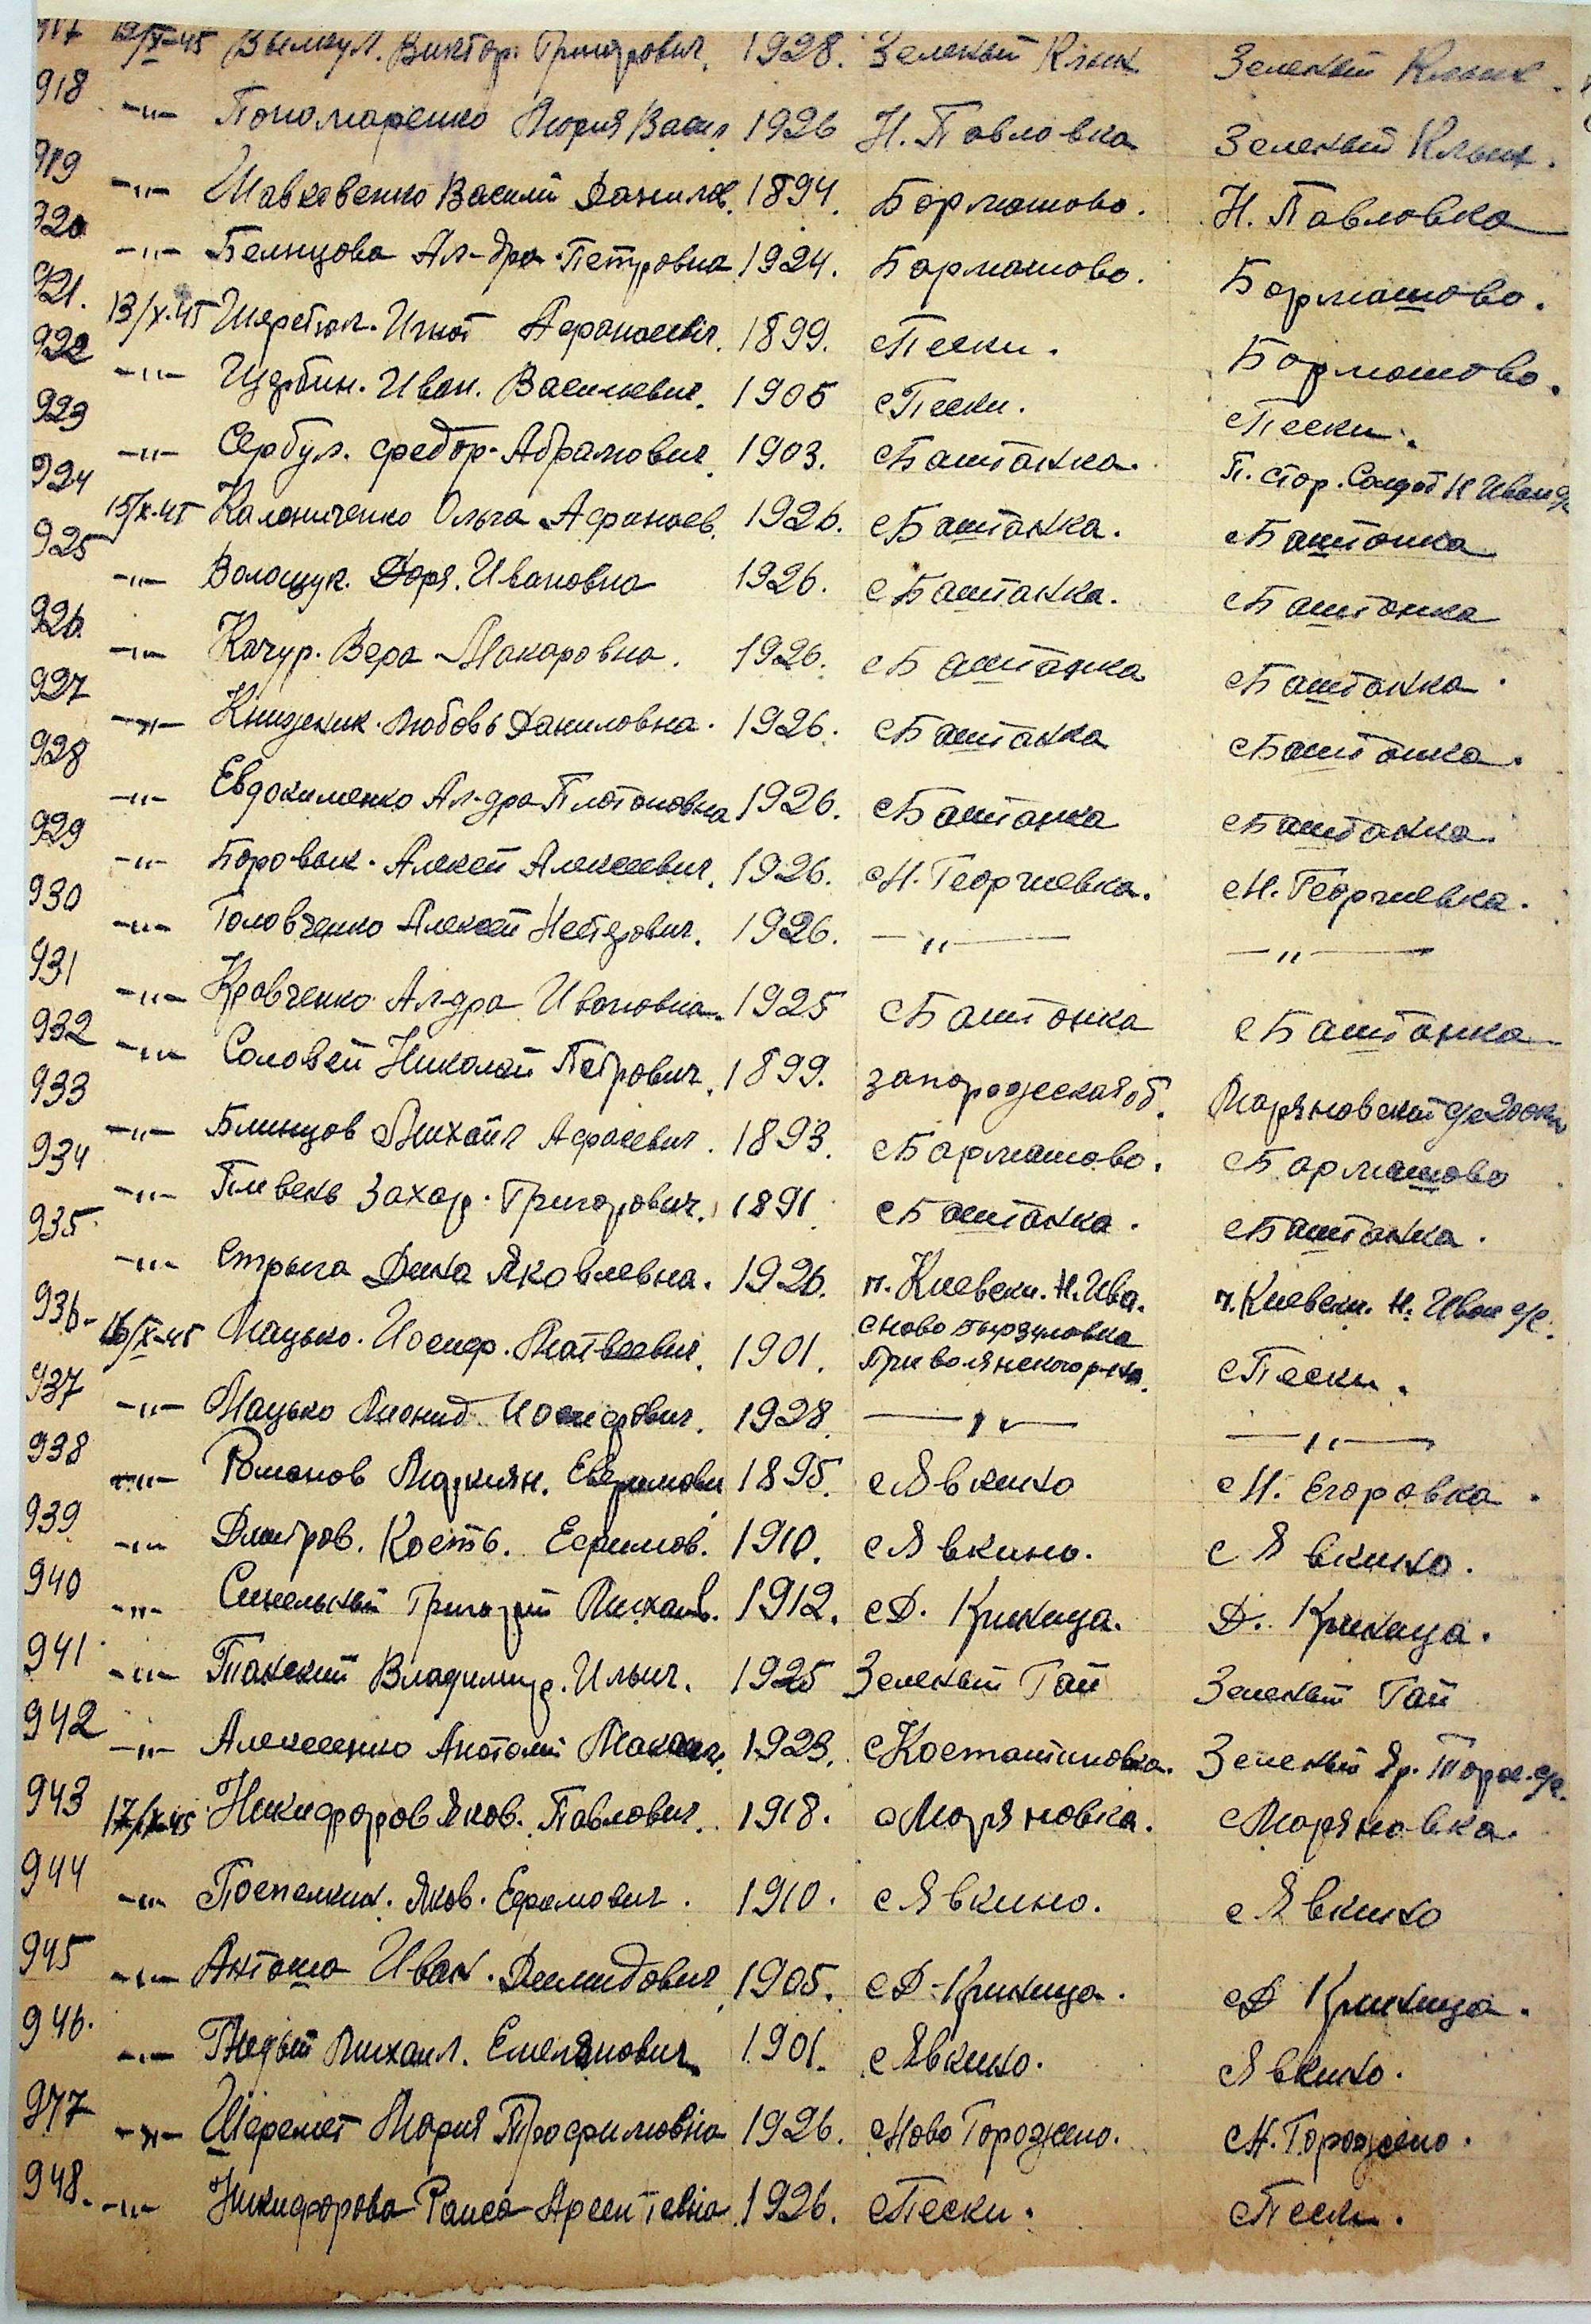 917 12/X-45 Вылкул. Виктор. Григорович. 1928. Зеленый Клын Зеленый Клын.
918 -"- Пономаренко Мория Васил. 1926 Н. Павловка Зеленый Клын.
919 -"- Шавковенко Василий Данилов. 1894. Бармашово. Н. Павловка
920 -"- Белицова Ал-дра Петровна 1924. Бармашово. Бармашово.
921. 13/X-45 Игнат Афанасевич. 1899. с Пески. Бармашово.
922 -"- Иван. Василевич. 1905 с Пески. с Пески.
923 -"- Сербул. Федор. Абрамович. 1903. с Баштанка. П. стор. Солдат Н Иван с/с
924 15/X-45 Калениченко Ольга Афанасев. 1926. с Баштанка. с Баштанка
925 -"- Волощук. Доря. Ивановна 1926. с Баштанка. с Баштанка
926. -"- Качур. Вера Макаровна. 1926. с Баштанка с Баштанка.
927 -"- Любовь Даниловна. 1926. с Баштанка с Баштанка.
928 -"- Евдокименко Ал-дра Платоновна 1926. с Баштанка с Баштанка.
929 -"- Боровык. Алексей Алексеевич. 1926. с Н. Георгиевка. с Н. Георгиевка.
930 -"- Головченко Алексей Нестерович. 1926. -"- -"-
931 -"- Кравченко Ал-дра Ивановна. 1925 с Баштанка с Баштанка
932 -"- Соловей Николай Петрович. 1899. запорожская об. Маряновской с/с
933 -"- Блинцов Михаил Афасевич. 1893. с Бармашово. с Бармашово
934 -"- Пивень Захар. Григорович. 1891. с Баштанка. с Баштанка.
935 -"- Стрыга Дина Яковлевна. 1926. п. Киевски. Н. Ива. п. Киевски. Н. Иван с/с.
936. 16/X-45 Мацько. Иосиф. Матвеевич. 1901. с ново
Приволянского р-на. с Пески.
937 -"- Мацько Леонид Иосифович. 1928. -"- -"-
938 -"- Романов Маркиян. 1895. с Явкино с Н. Егоровка.
939 -"- Дмитров. Кость. Ефимов. 1910. с Явкино. с Явкино.
940 -"- Синельный Григорий Михаил. 1912. с Д. Криница. Д. Криница.
941 -"- Танский Владимир. Ильич. 1925 Зеленый Гай Зеленый Гай
942 -"- Алексеенко Анатолий 1923. с Костантиновка. Зеленый Яр. с/с.
943 17/X-45 Никифоров Яков. Павлович. 1918. с Моряновка. с Моряновка.
944 -"- Поспелкин. Яков. Ефимович. 1910. с Явкино. с Явкино
945 -"- Антоша Иван. Демидович 1905. с Д-Криница. с Д Криница.
946. -"- Михаил. Емелянович 1901. с Явкино. с Явкино.
947 -"- Шеремет Мария Трофимовна 1926. с Ново Горожено. с Н. Горожено.
948. -"- Никифорова Раиса Арсентевна 1926. с Пески. с Пески.